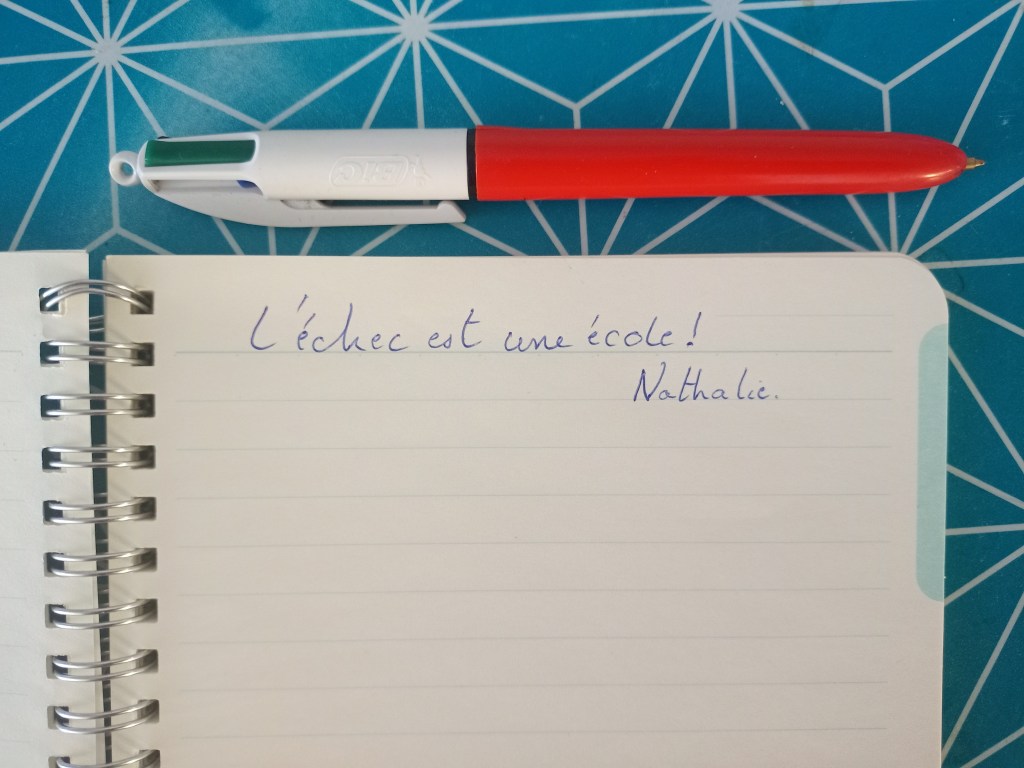 BIC
L'échec est une école !
Nathalie.